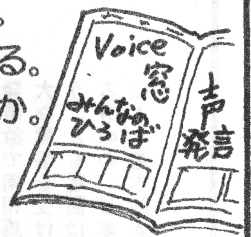 る。
か。
Voice
窓
みんなの
ひろば
声
発言